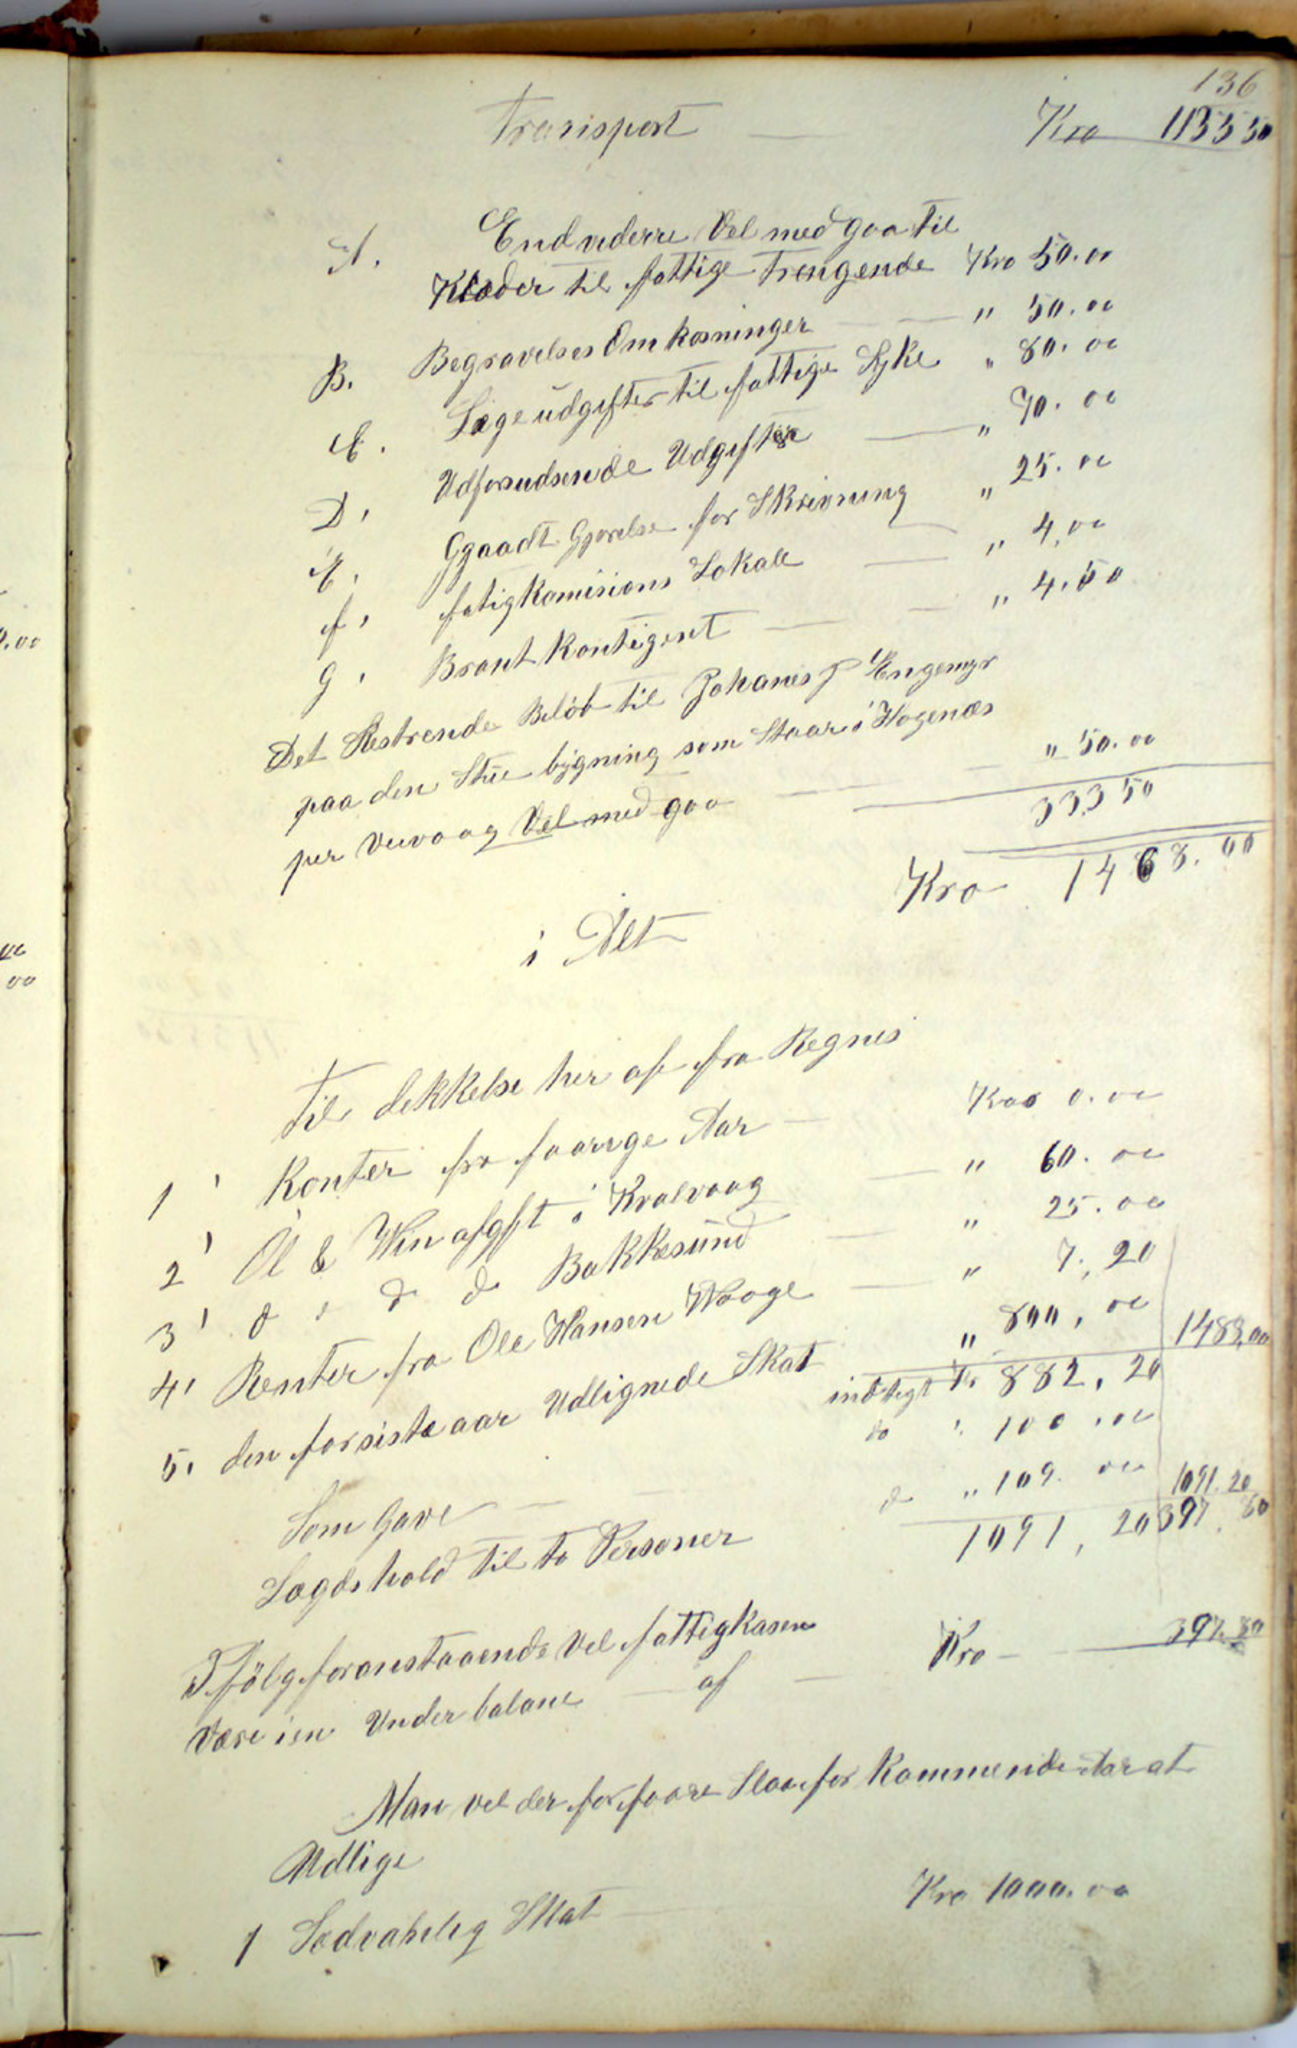 136
Transport — Kro 1135 50
A. Endvidere Vel med gaa til
Klæder til fattige Trengende Kro 50.00
B. Begravelses Omkosninger — " 50.00
C. Læge udgifter til fattige Syke " 80.00
D, Uforudsende Udgifter — " 70.00
E, Ggaadt Gjørelse for Skrivning " 25.00
f, fatigkomisions Lokale — " 4,00
g, Brant kontigent — " 4.50
Det Restrende Beløb til Johanes J Engemyr
paa den Stue bygning som Staar i Hogenæs
per Vevaag Vel med gaa — " 50.00
333 50
i Alt Kro 1468.00
Til dekkelse her af fra Regnes
1, Konter fra foorige Aar — Kro 0.00
2, Øl & Win afgft i Kralvaag — " 60.00
3, d , d d Bakkesund — " 25.00
4, Renter fra Ole Hansen Waage — " 7,20
5, den forsiste aar Udlignede Skat " 800,00 1489,00
indtegt Kr 882,20
Som Gave — do " 100,00
Lægds hold til to Personer d " 109.00 1091.20
1091,20 397,80
Ifølg foranstaaende Vel fattigkasen
Være i en Under balane — af — Kro — 397.80
Man vel der for foore Slaa for kommende Aar at
Udlige
1 Sædvahnlig Skat — Kro 1000.00